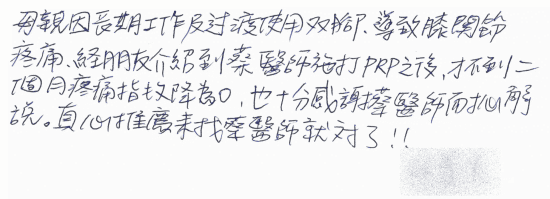 母親因長期工作及过度使用双腳、導致膝関節
疼痛、経朋友介紹到蔡醫師施打PRP之後,才不到二
個月疼痛指数降為0,也十分感謝蔡醫師耐心解
說。真心推薦来找蔡醫師就対了!!